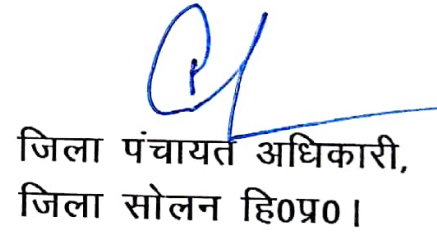 जिला पंचायत अधिकारी,
जिला सोलन हि0प्र0।